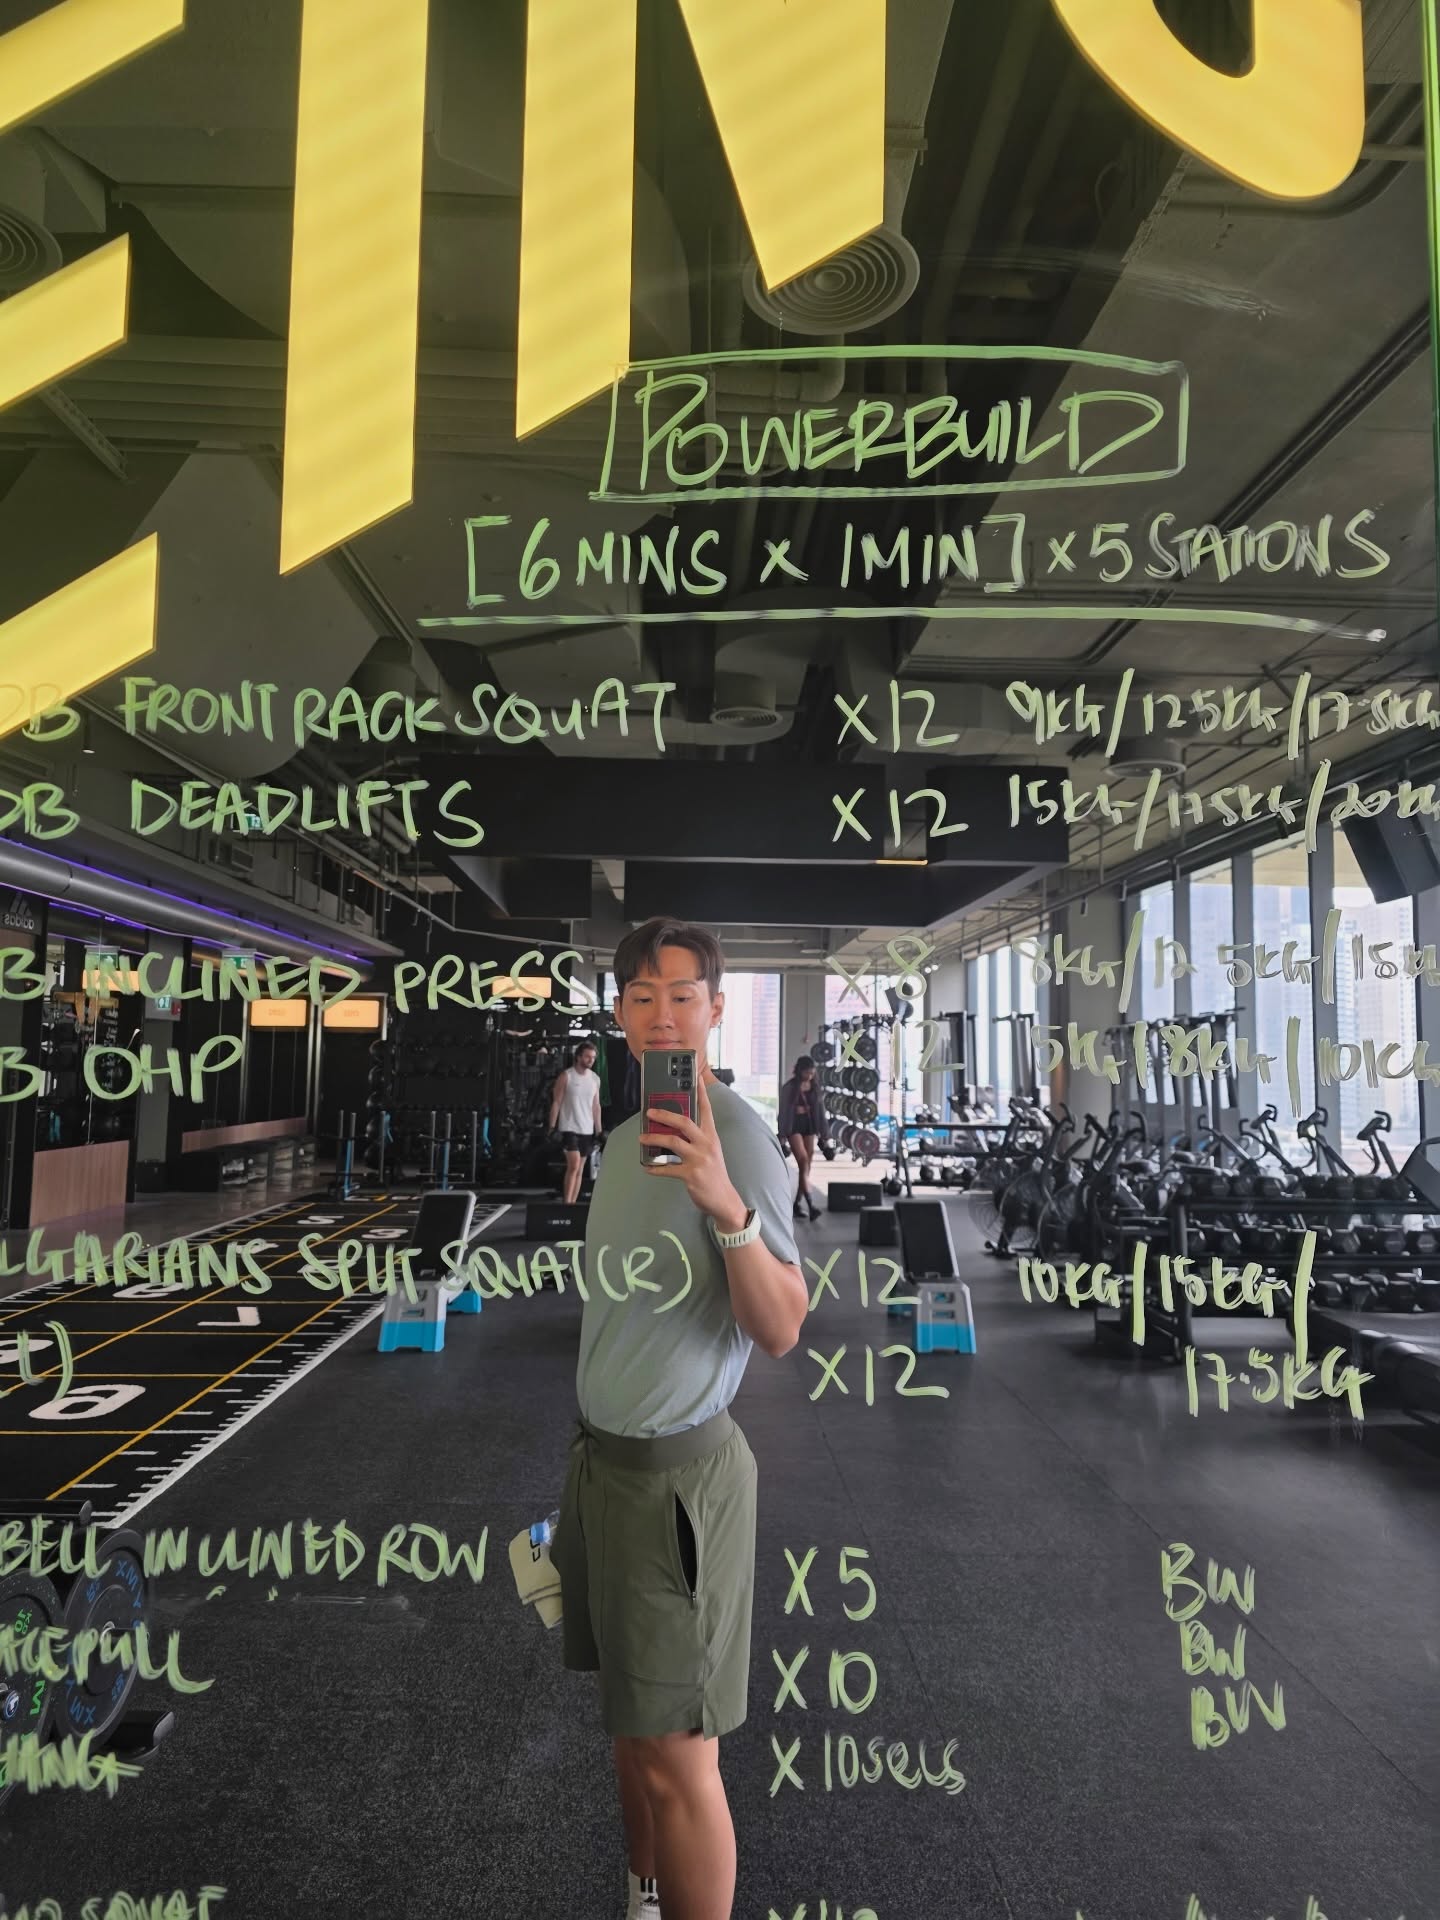 POWERBUILD
[6 MINS X 1 MIN] X 5 STATIONS
DB FRONT RACK SQUAT X12 9KG/12.5KG/17.5KG
DB DEADLIFTS X12 15KG/17.5KG/20KG
B INCLINED PRESS X8 8KG/12.5KG/15K
B OHP X12 5KG/8KG/10KG
LGARIANS SPLIT SQUAT (R) X12 10KG/15KG/
(L) X12 17.5KG
BELL INCLINED ROW X5 BW
ACE PULL X10 BW
HANG X 10 secs BW
SQUAT
adidas